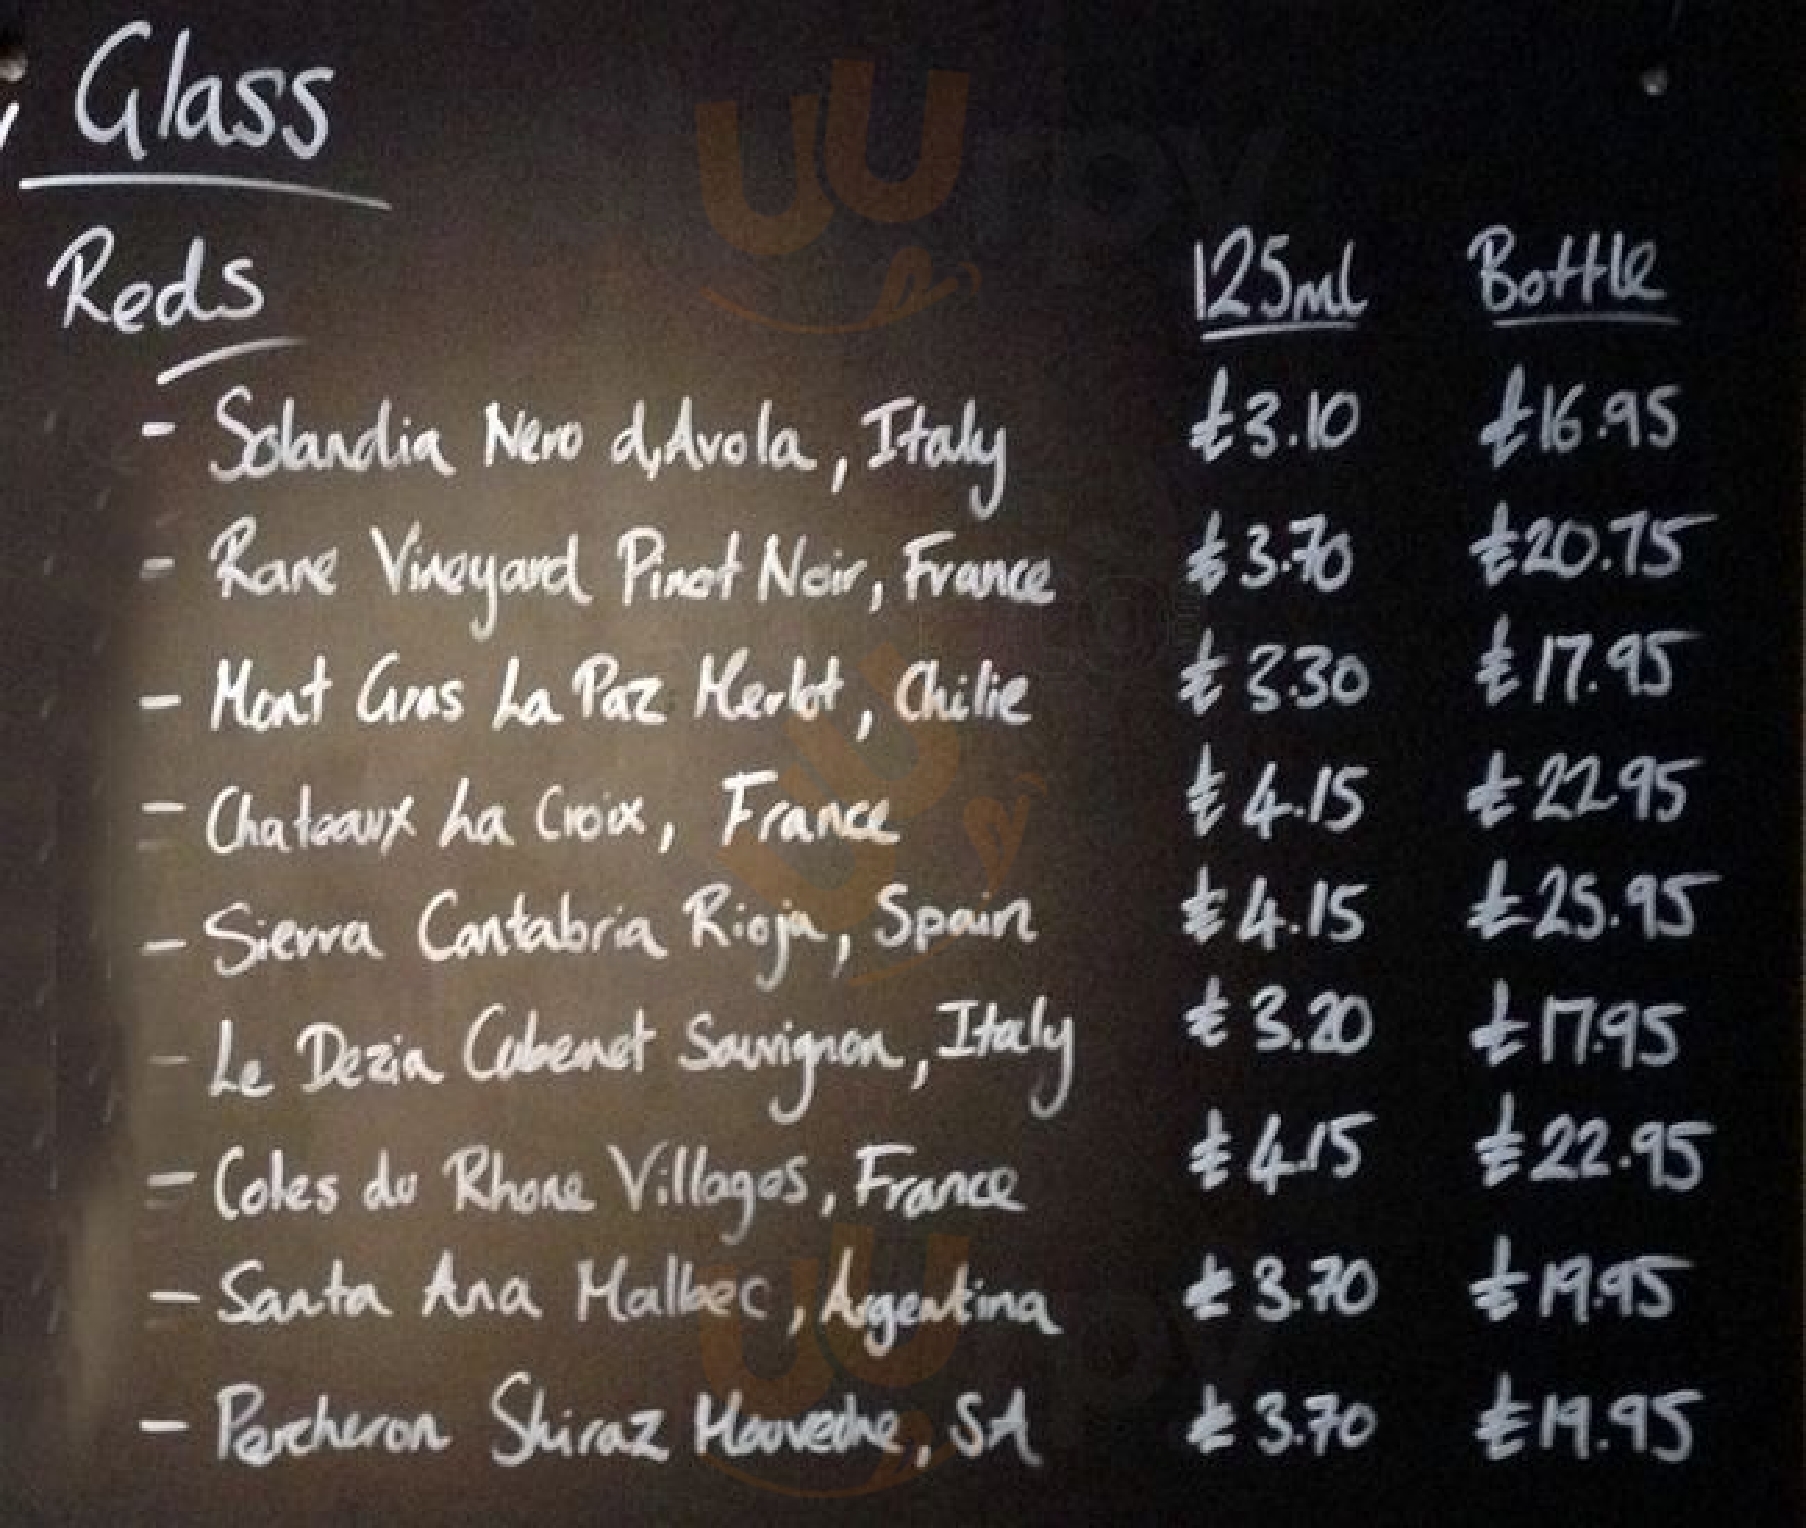 Glass
Reds 125ml Bottle
- Solandia Nero d,Avola, Italy £3.10 £16.95
- Rare Vineyard Pinot Noir, France £3.70 £20.75
- Mont Gras La Paz Merlot, Chilie £3.30 £17.95
- Chateaux La Croix, France £4.15 £22.95
- Sierra Cantabria Rioja, Spain £4.15 £25.95
- Le Dezia Cabernet Sauvignon, Italy £3.20 £17.95
- Cotes du Rhone Villages, France £4.15 £22.95
- Santa Ana Malbec, Argentina £3.70 £19.95
- Percheron Shiraz Mouvedre, SA £3.70 £19.95